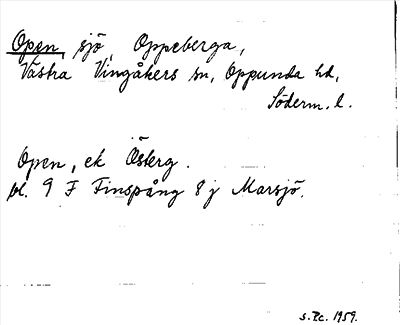 Open, sjö Oppeberga,
Västra Vingåkers sn, Oppunda hd,
Söderm. l.
Open, ek Österg.
bl. 9 F Finspång 8 j Marsjö.
s. Bc. 1959.